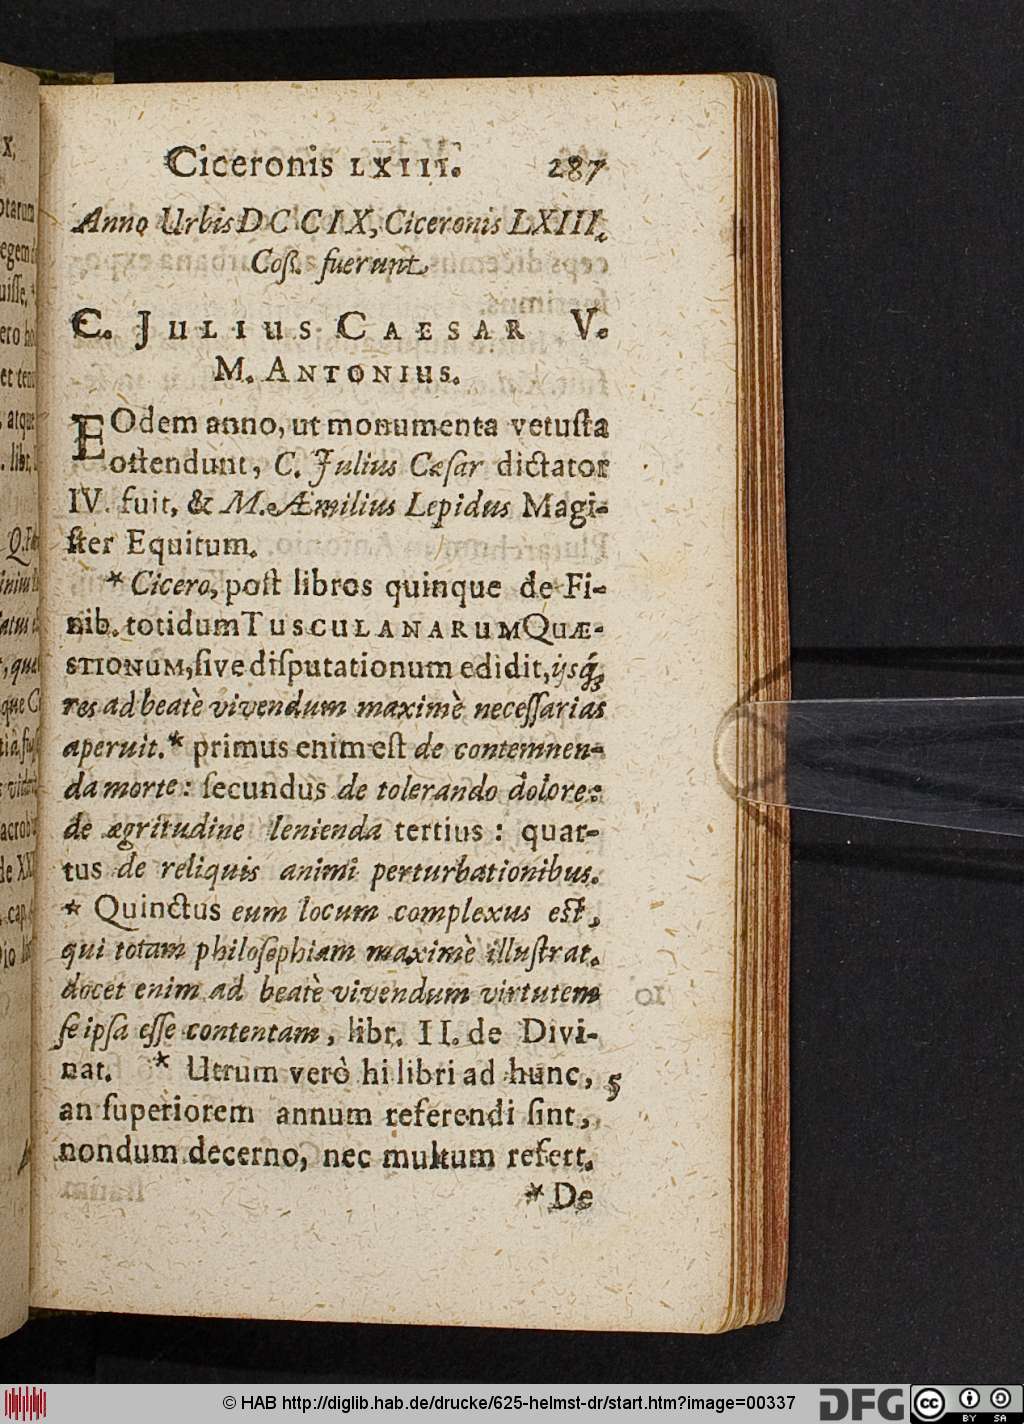 Ciceronis LXIII. 287
Anno Urbis DCCIX, Ciceronis LXIII,
Coſſ. fuerunt
C. JULIUS CAESAR V.
M. ANTONIUS.
EOdem anno, ut monumenta vetuſta
oſtendunt, C. Julius Cæſar dictator
IV. fuit, & M. Æmilius Lepidus Magi-
ſter Equitum.
* Cicero, poſt libros quinque de Fi-
nib. totidum TUSCULANARUM QUÆ-
STIONUM, ſive diſputationum edidit, ijsq́;
res ad beatè vivendum maximè neceſſarias
aperuit. * primus enim eſt de contemnen-
da morte: ſecundus de tolerando dolore:
de ægritudine lenienda tertius: quar-
tus de reliquis animi perturbationibus.
* Quinctus eum locum complexus eſt,
qui totam philoſophiam maximè illuſtrat.
docet enim ad beatè vivendum virtutem
ſe ipſa eſſe contentam, libr. II. de Divi-
nat. * Utrum verò hi libri ad hunc, 5
an ſuperiorem annum referendi ſint,
nondum decerno, nec multum refert.
* De
© HAB http://diglib.hab.de/drucke/625-helmst-dr/start.htm?image=00337
DFG
cc BY SA